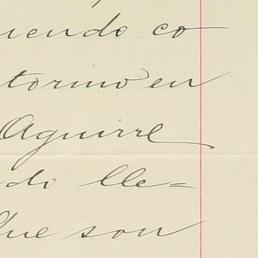 uendo co
torino en
Aguirre
di lle=
Que son